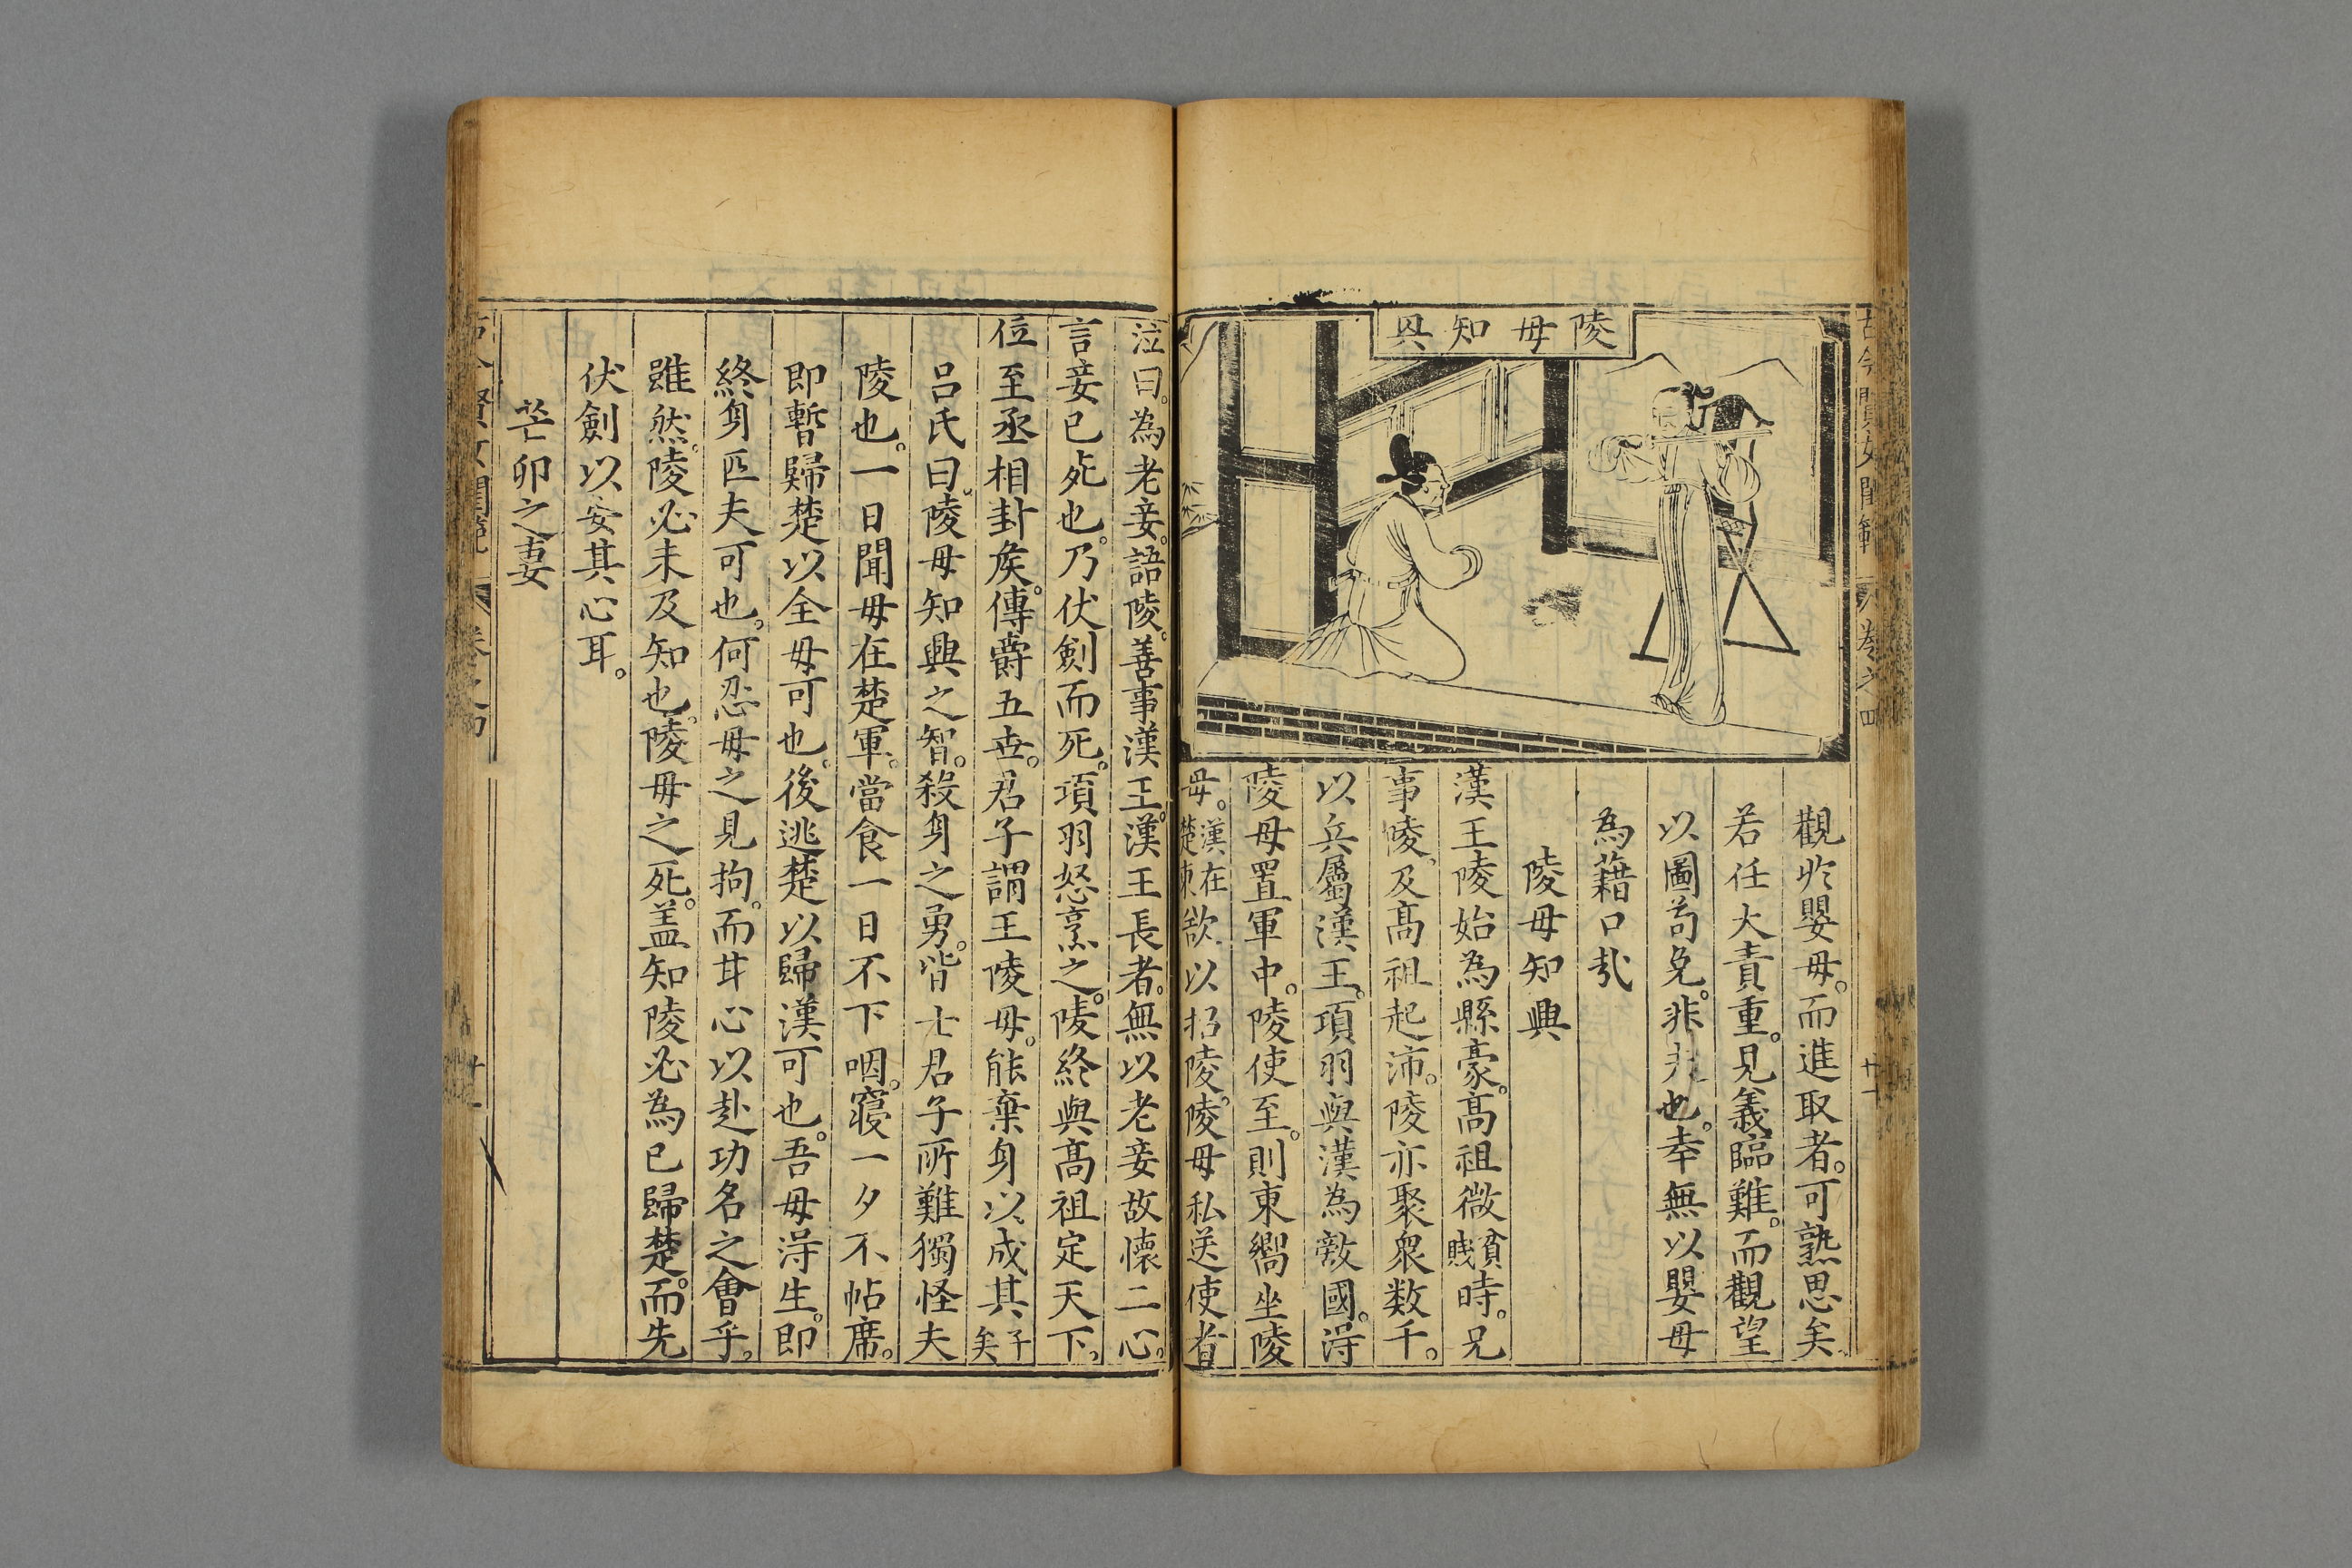 古今賢女閨範 卷之四 廿一
陵母知興
觀於嬰母。而進取者。可熟思矣
若任大責重。見義臨難。而觀望
以圖苟免。非夫也。幸無以嬰母
為藉口哉
陵母知興
漢王陵始為縣豪。高祖微貧賤時。兄
事陵。及高祖起沛。陵亦聚衆数千。
以兵屬漢王。項羽與漢為敵國。淂
陵母置軍中。陵使至。則東嚮坐陵
母。漢在楚東欲以招陵。陵母私送使者
泣曰。為老妾。語陵。善事漢王。漢王長者。無以老妾故懷二心。
言妾已死也。乃伏劍而死。項羽怒烹之。陵終與高祖定天下。
位至丞相封矦。傳爵五世。君子謂王陵母。能棄身以成其子矣
呂氏曰。陵母知興之智。殺身之勇。皆士君子所難獨怪夫
陵也。一日聞母在楚軍。當食一日不下咽。寢一夕不帖席。
即暫歸楚以全母可也。後逃楚以歸漢可也。吾母淂生。即
終身匹夫可也。何忍母之見拘。而甘心以赴功名之會乎。
雖然。陵必未及知也。陵母之死。盖知陵必為已歸楚。而先
伏劍以安其心耳。
芒卯之妻
古今賢女閨範 卷之四